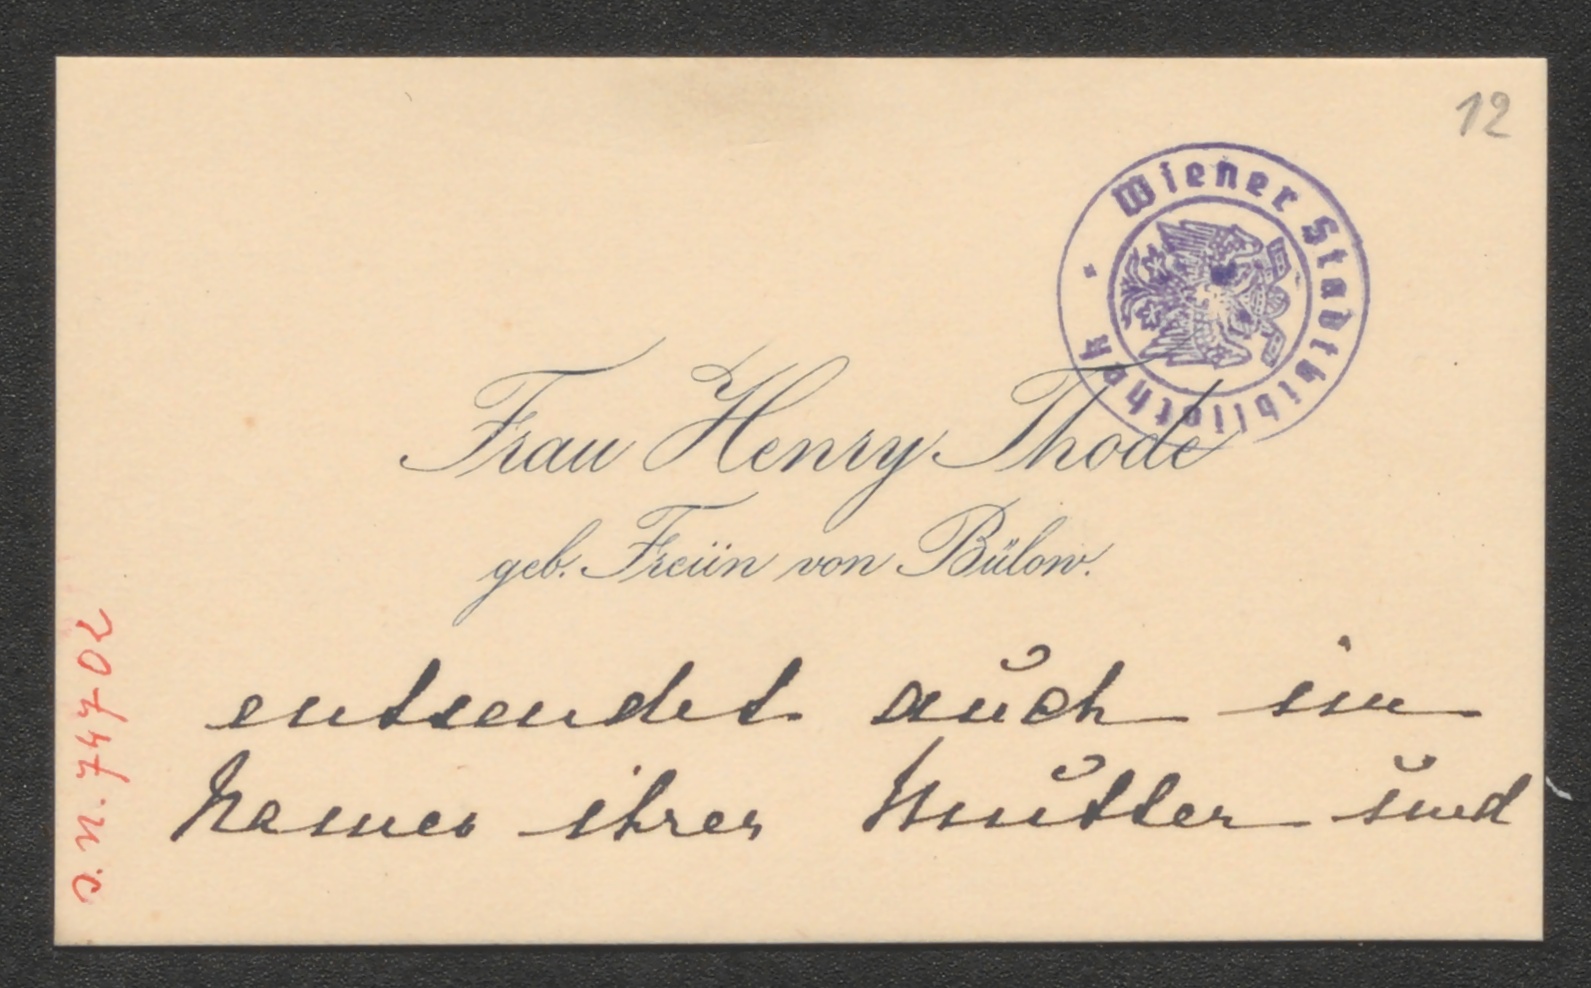 12
Wiener Stadtbibliothek
Frau Henry Thode
geb. Freiin von Bülow.
entsendet auch im
Namen ihrer Mutter und
J.N. 74702